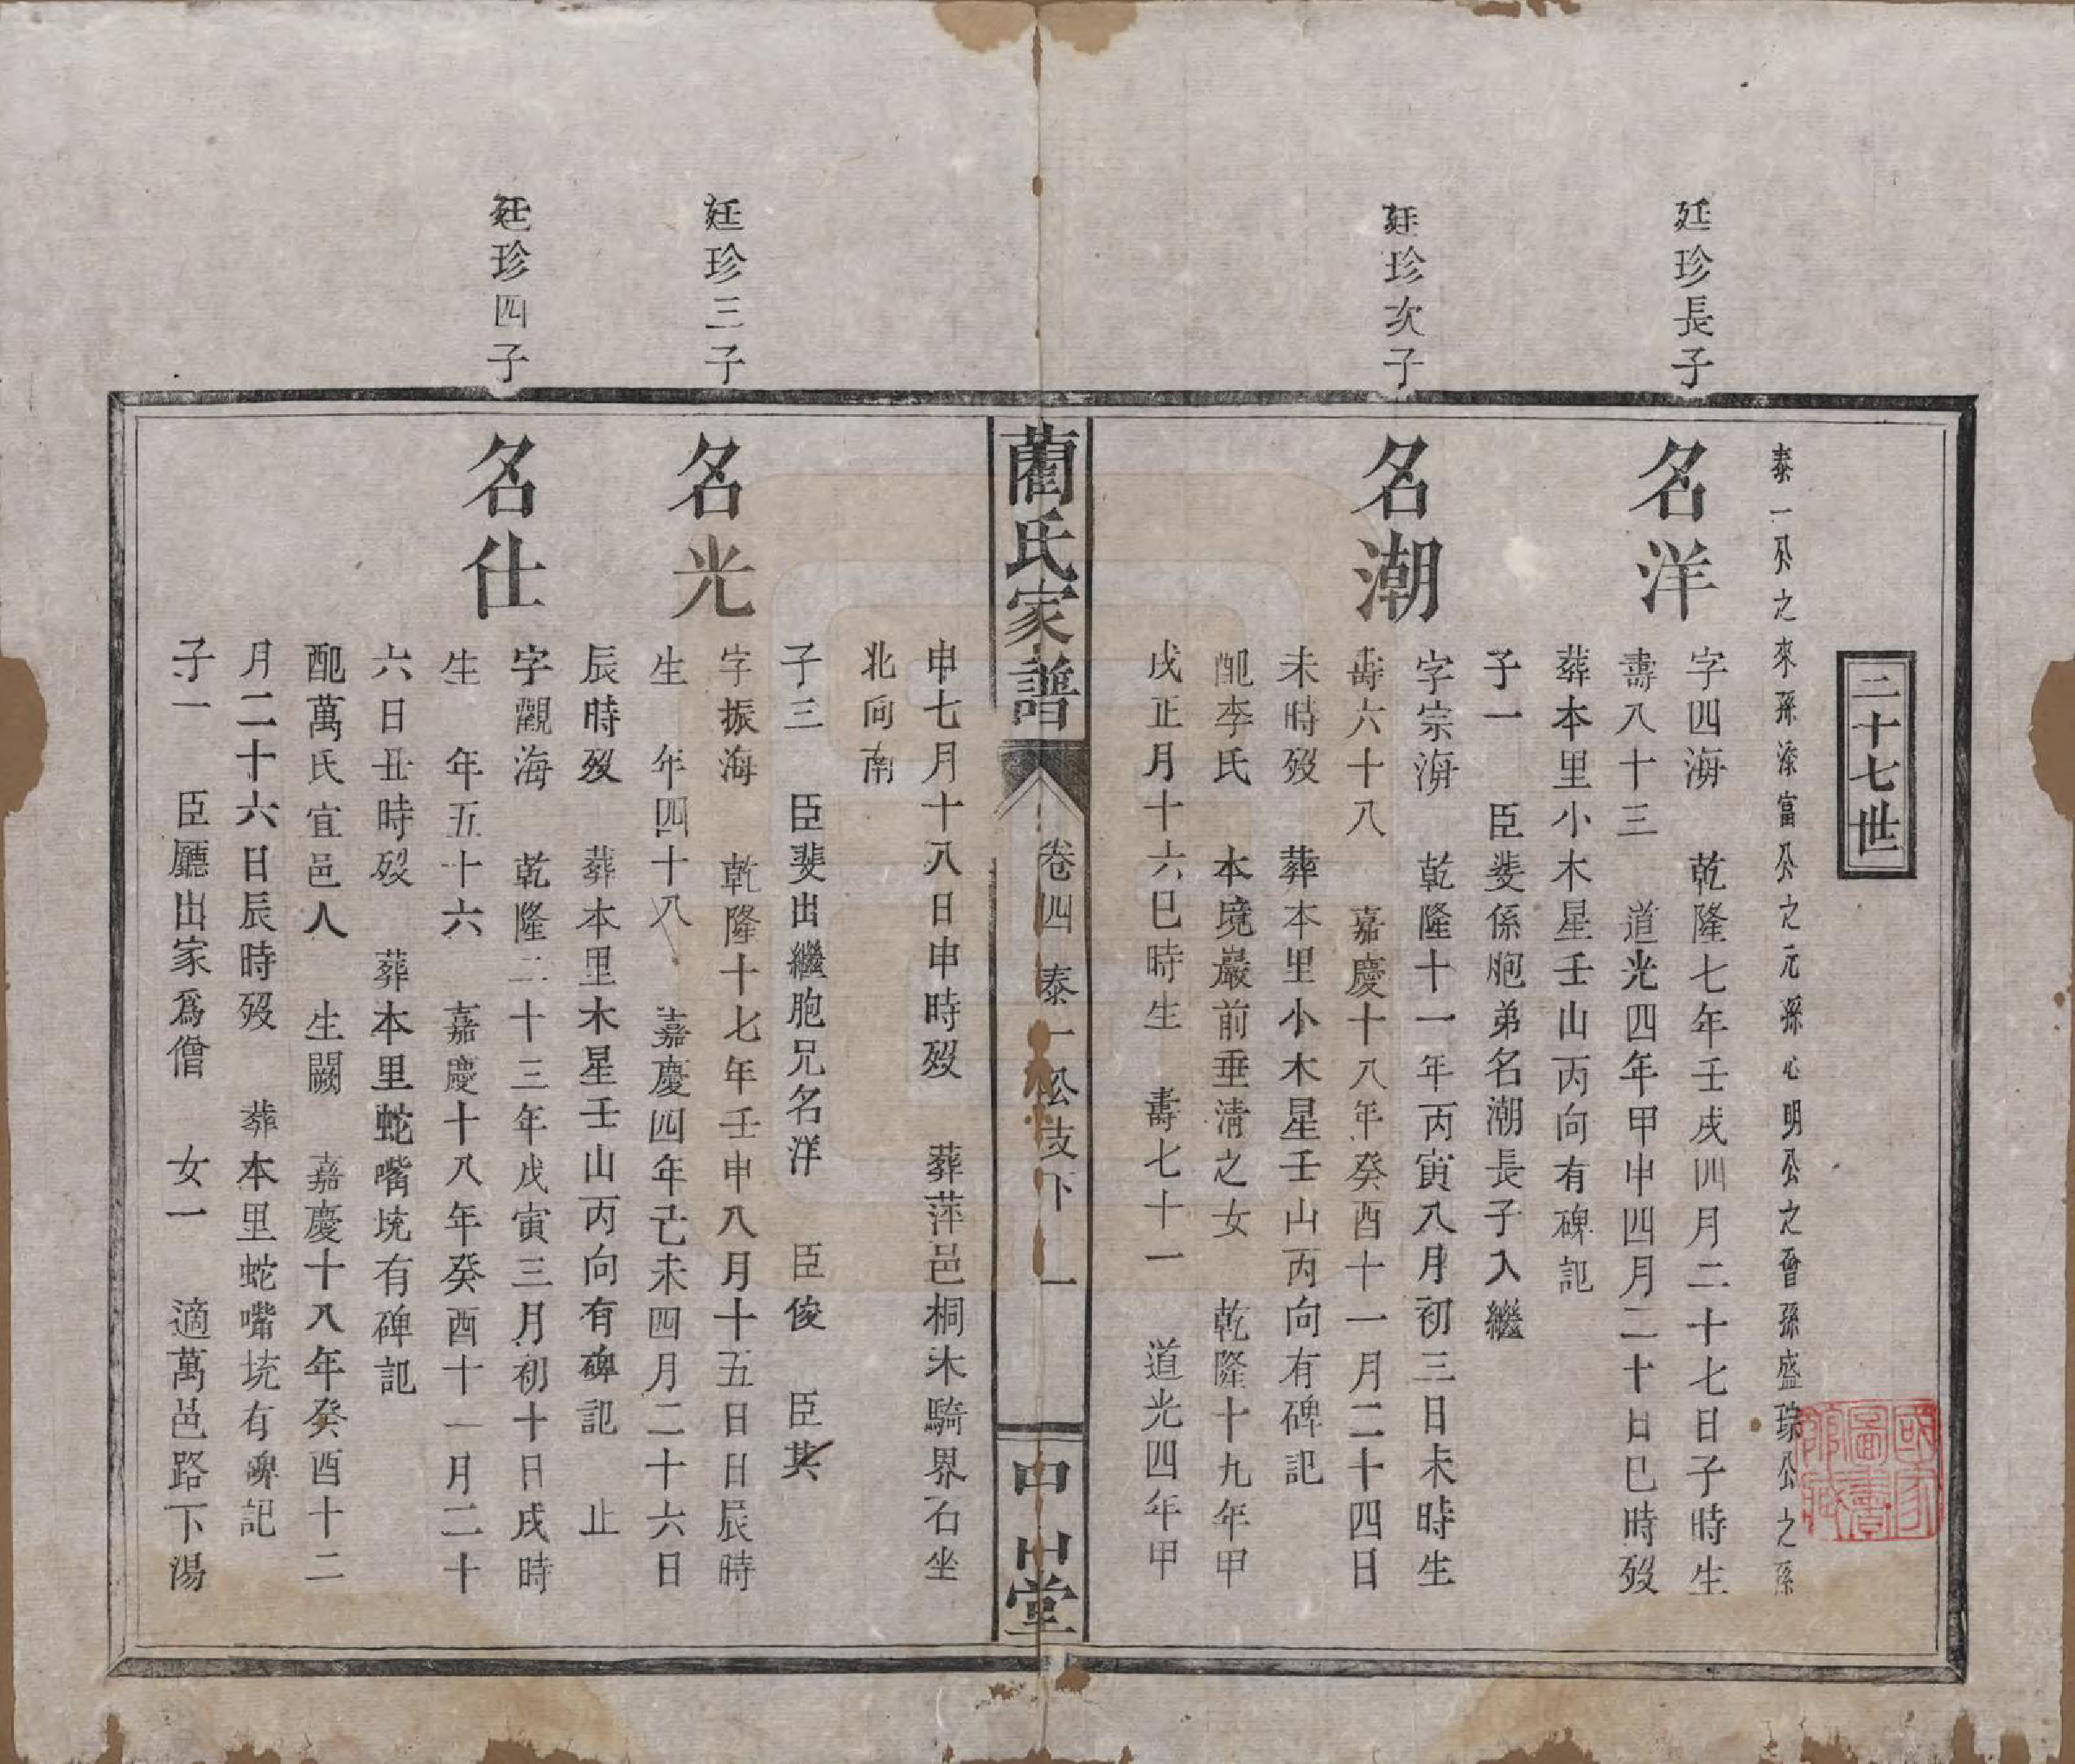 二十七世
泰一公之來孫添富公之元孫心明公之曾孫盛琮公之孫
廷珍長子
名洋
字四海　乾隆七年壬戌四月二十七日子時生
壽八十三　道光四年甲申四月二十日巳時歿
葬本里小木星壬山丙向有碑記
子一　臣斐係胞弟名潮長子入繼
廷珍次子
名潮
字宗海　乾隆十一年丙寅八月初三日未時生
壽六十八　嘉慶十八年癸酉十一月二十四日
未時歿　葬本里小木星壬山丙向有碑記
配李氏　本境巖前垂清之女　乾隆十九年甲
戌正月十六巳時生　壽七十一　道光四年甲
藺氏家譜　卷四　泰一松支下　一　中山堂
申七月十八日申時歿　葬萍邑桐木騎界石坐
北向南
子三　臣斐出繼胞兄名洋　臣俊　臣其
廷珍三子
名光
字振海　乾隆十七年壬申八月十五日日辰時
生　年四十八　嘉慶四年己未四月二十六日
辰時歿　葬本里木星壬山丙向有碑記　止
廷珍四子
名仕
字觀海　乾隆二十三年戊寅三月初十日戌時
生　年五十六　嘉慶十八年癸酉十一月二十
六日丑時歿　葬本里蛇嘴坑有碑記
配萬氏宜邑人　生闕　嘉慶十八年癸酉十二
月二十六日辰時歿　葬本里蛇嘴坑有碑記
子一　臣廳出家爲僧　女一　適萬邑路下湯
國家圖書館藏